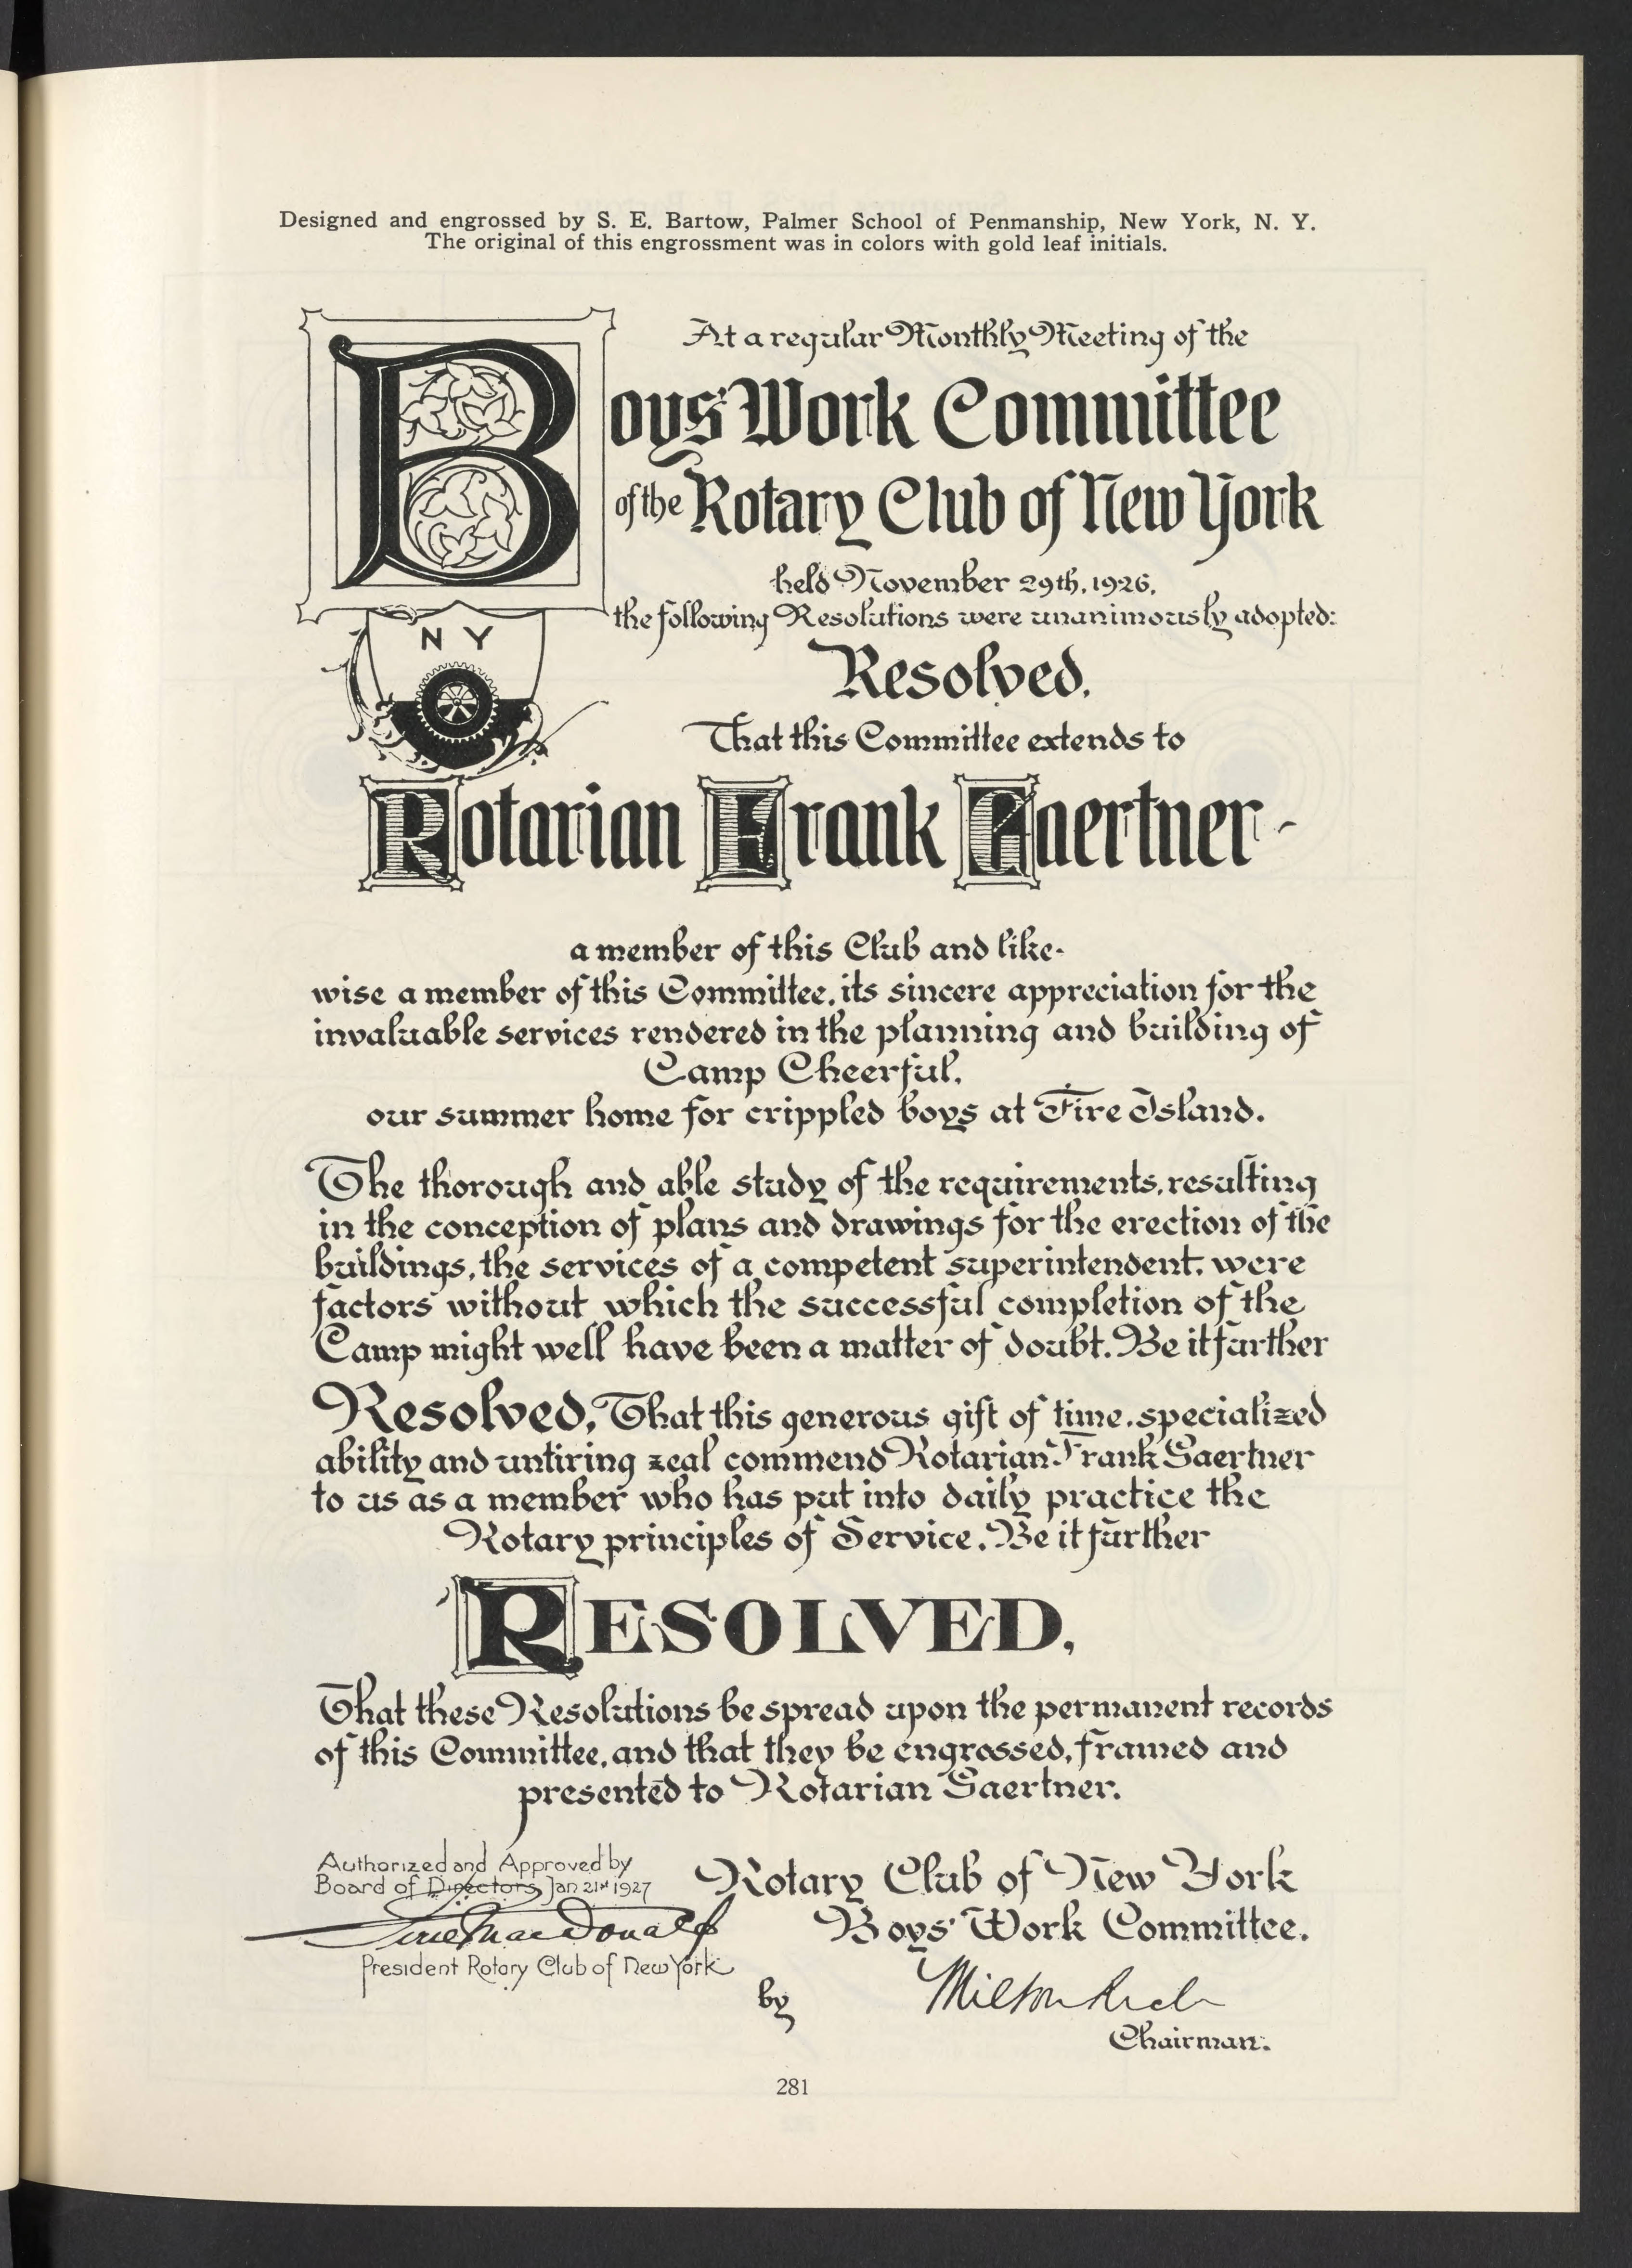 Designed and engrossed by S. E. Bartow, Palmer School of Penmanship, New York, N. Y.
The original of this engrossment was in colors with gold leaf initials.
At a regular Monthly Meeting of the
Boys' Work Committee
of the Rotary Club of New York
held November 29th, 1926,
the following Resolutions were unanimously adopted:
N Y
Resolved,
That this Committee extends to
Rotarian Frank Gaertner-
a member of this Club and like-
wise a member of this Committee, its sincere appreciation for the
invaluable services rendered in the planning and building of
Camp Cheerful,
our summer home for crippled boys at Fire Island.
The thorough and able study of the requirements, resulting
in the conception of plans and drawings for the erection of the
buildings, the services of a competent superintendent, were
factors without which the successful completion of the
Camp might well have been a matter of doubt. Be it further
Resolved, That this generous gift of time, specialized
ability and untiring zeal commend Rotarian Frank Gaertner
to us as a member who has put into daily practice the
Rotary principles of Service. Be it further
RESOLVED,
That these Resolutions be spread upon the permanent records
of this Committee, and that they be engrossed, framed and
presented to Rotarian Gaertner.
Authorized and Approved by
Board of Directors Jan 21st 1927
MacDonald
President Rotary Club of New York
Rotary Club of New York
Boys' Work Committee.
by Milton
Chairman.
281